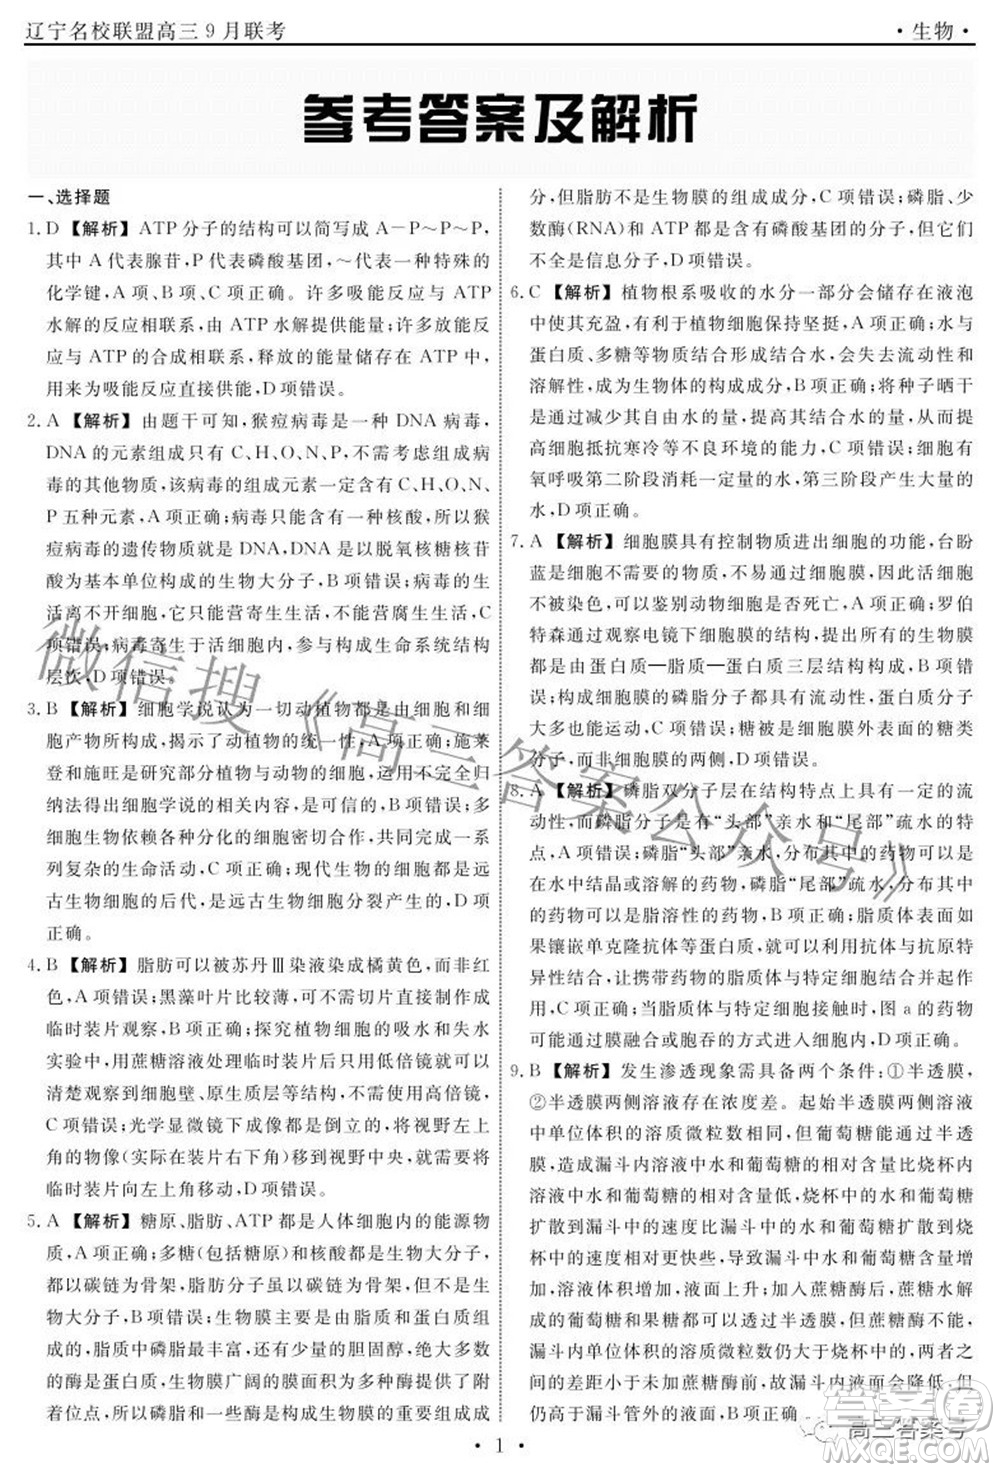 辽宁名校联盟高三9月联考
·生物·
参考答案及解析
一、选择题
1. D 【解析】ATP分子的结构可以简写成A－P～P～P,
其中A代表腺苷,P代表磷酸基团,～代表一种特殊的
化学键,A项、B项、C项正确。许多吸能反应与ATP
水解的反应相联系,由ATP水解提供能量;许多放能
反应与ATP的合成相联系,释放的能量储存在ATP中,
用来为吸能反应直接供能,D项错误。
2. A 【解析】由题干可知,猴痘病毒是一种DNA病毒,
DNA的元素组成只有C、H、O、N、P,不考虑组成病
毒的其他物质,该病毒的组成元素一定含有C、H、O、N、
P五种元素,A项正确;病毒只含有一种核酸,所以猴
痘病毒的遗传物质就是DNA,DNA是以脱氧核糖核苷
酸为基本单位构成的生物大分子,B项错误;病毒的生
活离不开细胞,它只能营寄生生活,不能营腐生生活,C
项错误;病毒寄生于活细胞内,参与构成生命系统结构
层次,D项错误。
3. B 【解析】细胞学说认为一切动植物都是由细胞和细
胞产物所构成,揭示了动植物的统一性,A项正确;施莱
登和施旺是研究部分植物和动物的细胞,运用不完全归
纳法得出细胞学说的主要内容,B项错误;多
细胞生物依赖各种分化的细胞密切合作,共同完成一系
列复杂的生命活动,C项正确;现代生物的细胞都是远
古生物细胞的后代,是远古生物细胞分裂产生的,D项
正确。
4. B 【解析】脂肪可以被苏丹Ⅲ染液染成橘黄色,而非红
色,A项错误;黑藻叶片比较薄,可以直接用来制成
临时装片观察,B项正确;探究植物细胞的吸水和失水
实验中,用蔗糖溶液处理临时装片后用低倍镜就可以
清晰地观察到细胞壁、原生质层等,不需要用高倍镜,
C项错误;光学显微镜下成像都是倒立的,将视野左上
角的物像(在装片右下角)移到视野中央,需要将装片
向左上角移动,D项错误。
5. A 【解析】糖原、脂肪、ATP都是人体细胞内的能源物
质,A项正确;多糖(包括糖原)和核酸都是大分子,
都以碳链为骨架,脂肪分子虽以碳链为骨架,但不属于
生物大分子,B项错误;生物膜主要是由脂质和蛋白质
组成的,有的生物膜还含有少量的胆固醇,磷脂是生物
膜的重要成分,生物膜广阔的膜面积为多种酶提供了
附着位点,所以磷脂和一些酶是构成生物膜的重要组成成
分,但脂肪不是生物膜的组成成分,C项错误;磷脂、少
数酶(RNA)和ATP都是含有磷酸基团的分子,但它们
不全是信息分子,D项错误。
6. C 【解析】植物根系吸收的水分一部分会储存在液泡
中使其充盈,有利于植物细胞保持坚挺,A项正确;水与
蛋白质、多糖等物质结合形成结合水,就会失去流动性和
溶解性,成为生物体的构成成分,B项正确;将种子晒干
是通过减少其自由水的量,提高其结合水的量,从而提
高细胞抵抗寒冷等不良环境的能力,C项错误;细胞有
氧呼吸第二阶段消耗一定量的水,第三阶段产生大量的
水,D项正确。
7. A 【解析】细胞膜具有控制物质进出细胞的功能,台盼
蓝是细胞不需要的物质,不易通过细胞膜,因此活细胞
不被染色,可以鉴别动物细胞是否死亡,A项正确;罗伯
特森通过观察电镜下细胞膜的结构,提出所有的生物膜
都是由蛋白质—脂质—蛋白质三层结构构成,B项错
误;构成细胞膜的磷脂分子能侧向移动,蛋白质分子
大多也能运动,C项错误;糖被是细胞膜外表面的糖类
分子,而非细胞膜的两侧,D项错误。
8. A 【解析】磷脂双分子层在结构特点上具有一定的流
动性,而磷脂分子有“头部”亲水和“尾部”疏水的特
点,A项错误;磷脂“头部”亲水,分布其中的药物是能
在水中结晶或溶解的药物,磷脂“尾部”疏水,分布其中
的药物为脂溶性的药物,B项正确;脂质体表面如
果镶嵌单克隆抗体等蛋白质,可以通过抗体与抗原特
异性反应,让携带药物的脂质体与特定细胞结合并起作
用,C项正确;当脂质体与特定细胞接触时,图a的药物
可能通过膜融合或胞吞的方式进入细胞内,D项正确。
9. B 【解析】发生渗透现象需具备两个条件:①半透膜,
②半透膜两侧溶液存在浓度差。起始半透膜两侧溶液
中单位体积的溶质微粒数相同,但葡萄糖能通过半透膜,
蔗糖不能,故漏斗内溶液中水和葡萄糖的数量比烧杯内
溶液中水和葡萄糖的数量少,烧杯中的水和葡萄糖
扩散到漏斗中的速度与漏斗中水和葡萄糖扩散到烧
杯中的速度相对更快些,导致漏斗中水和葡萄糖增多,
溶液体积增加,液面上升;加入蔗糖酶后,蔗糖水解形成
的葡萄糖和果糖会扩散到烧杯中,但蔗糖酶不能,最终
漏斗内外单位体积的溶质微粒数仍不等,漏斗内外溶液
的差距小于未加蔗糖酶前,漏斗内液面会降低,但最终
仍高于漏斗管外的液面,B项正确。
· 1 ·
微信搜《高三答案公众号》
高三答案号
答案圈
MXQE.COM